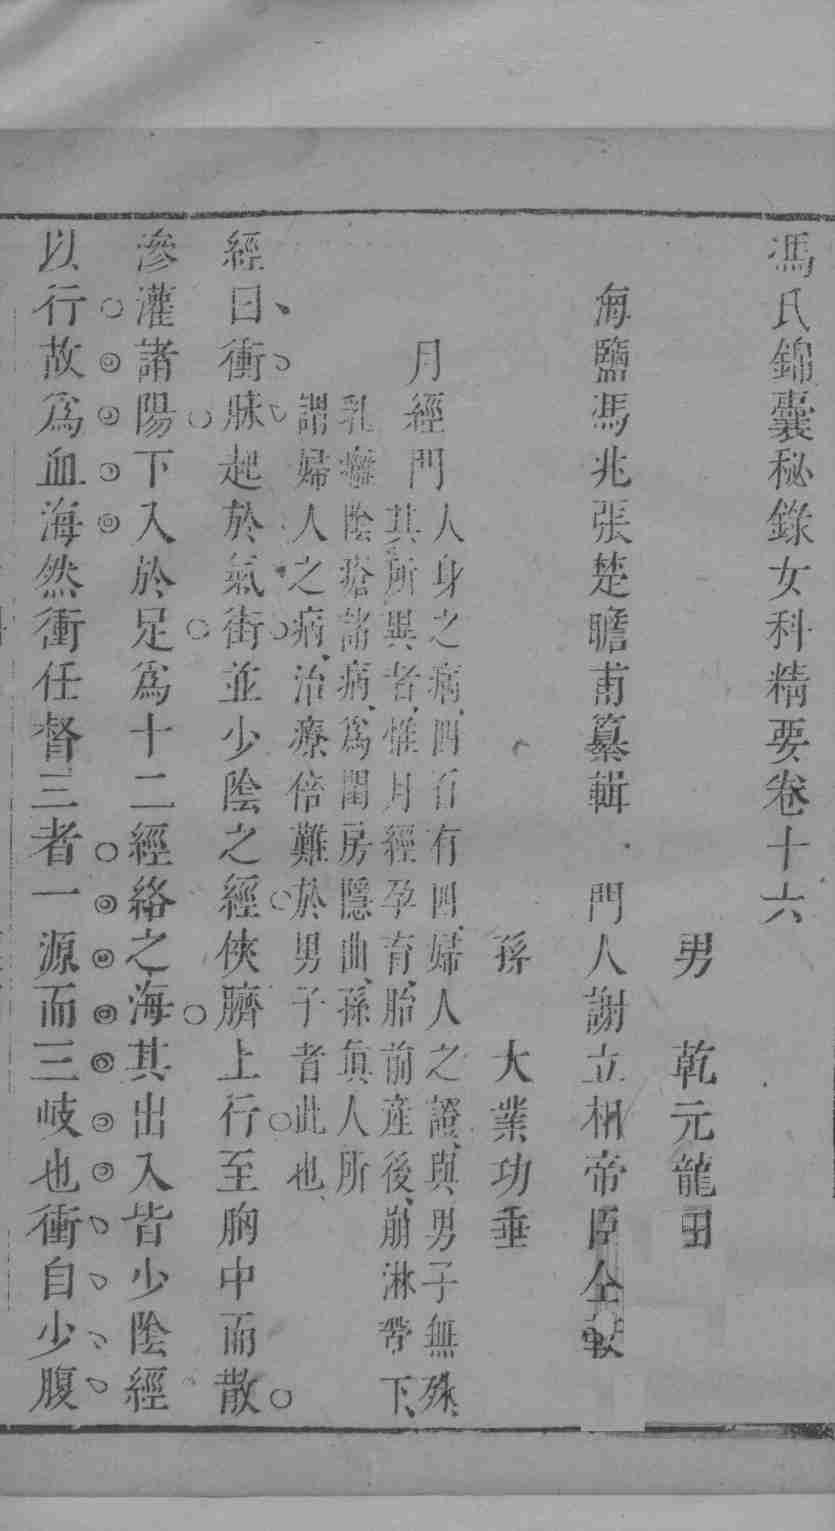 馮氏錦囊秘錄女科精要卷十六
男 乾元龍田
海鹽馮兆張楚瞻甫纂輯 門人謝立相帝臣仝較
孫 大業功垂
月經門人身之病、四百有四、婦人之證、與男子無殊、
其所異者、惟月經孕育、胎前產後、崩淋帶下、
乳癰陰瘡諸病、爲閨房隱曲、孫眞人所
謂婦人之病、治療倍難於男子者此也、
經曰、衝脉起於氣街並少陰之經俠臍上行至胸中而散
滲灌諸陽下入於足爲十二經絡之海其出入皆少陰經
以行故爲血海然衝任督三者一源而三岐也衝自少腹